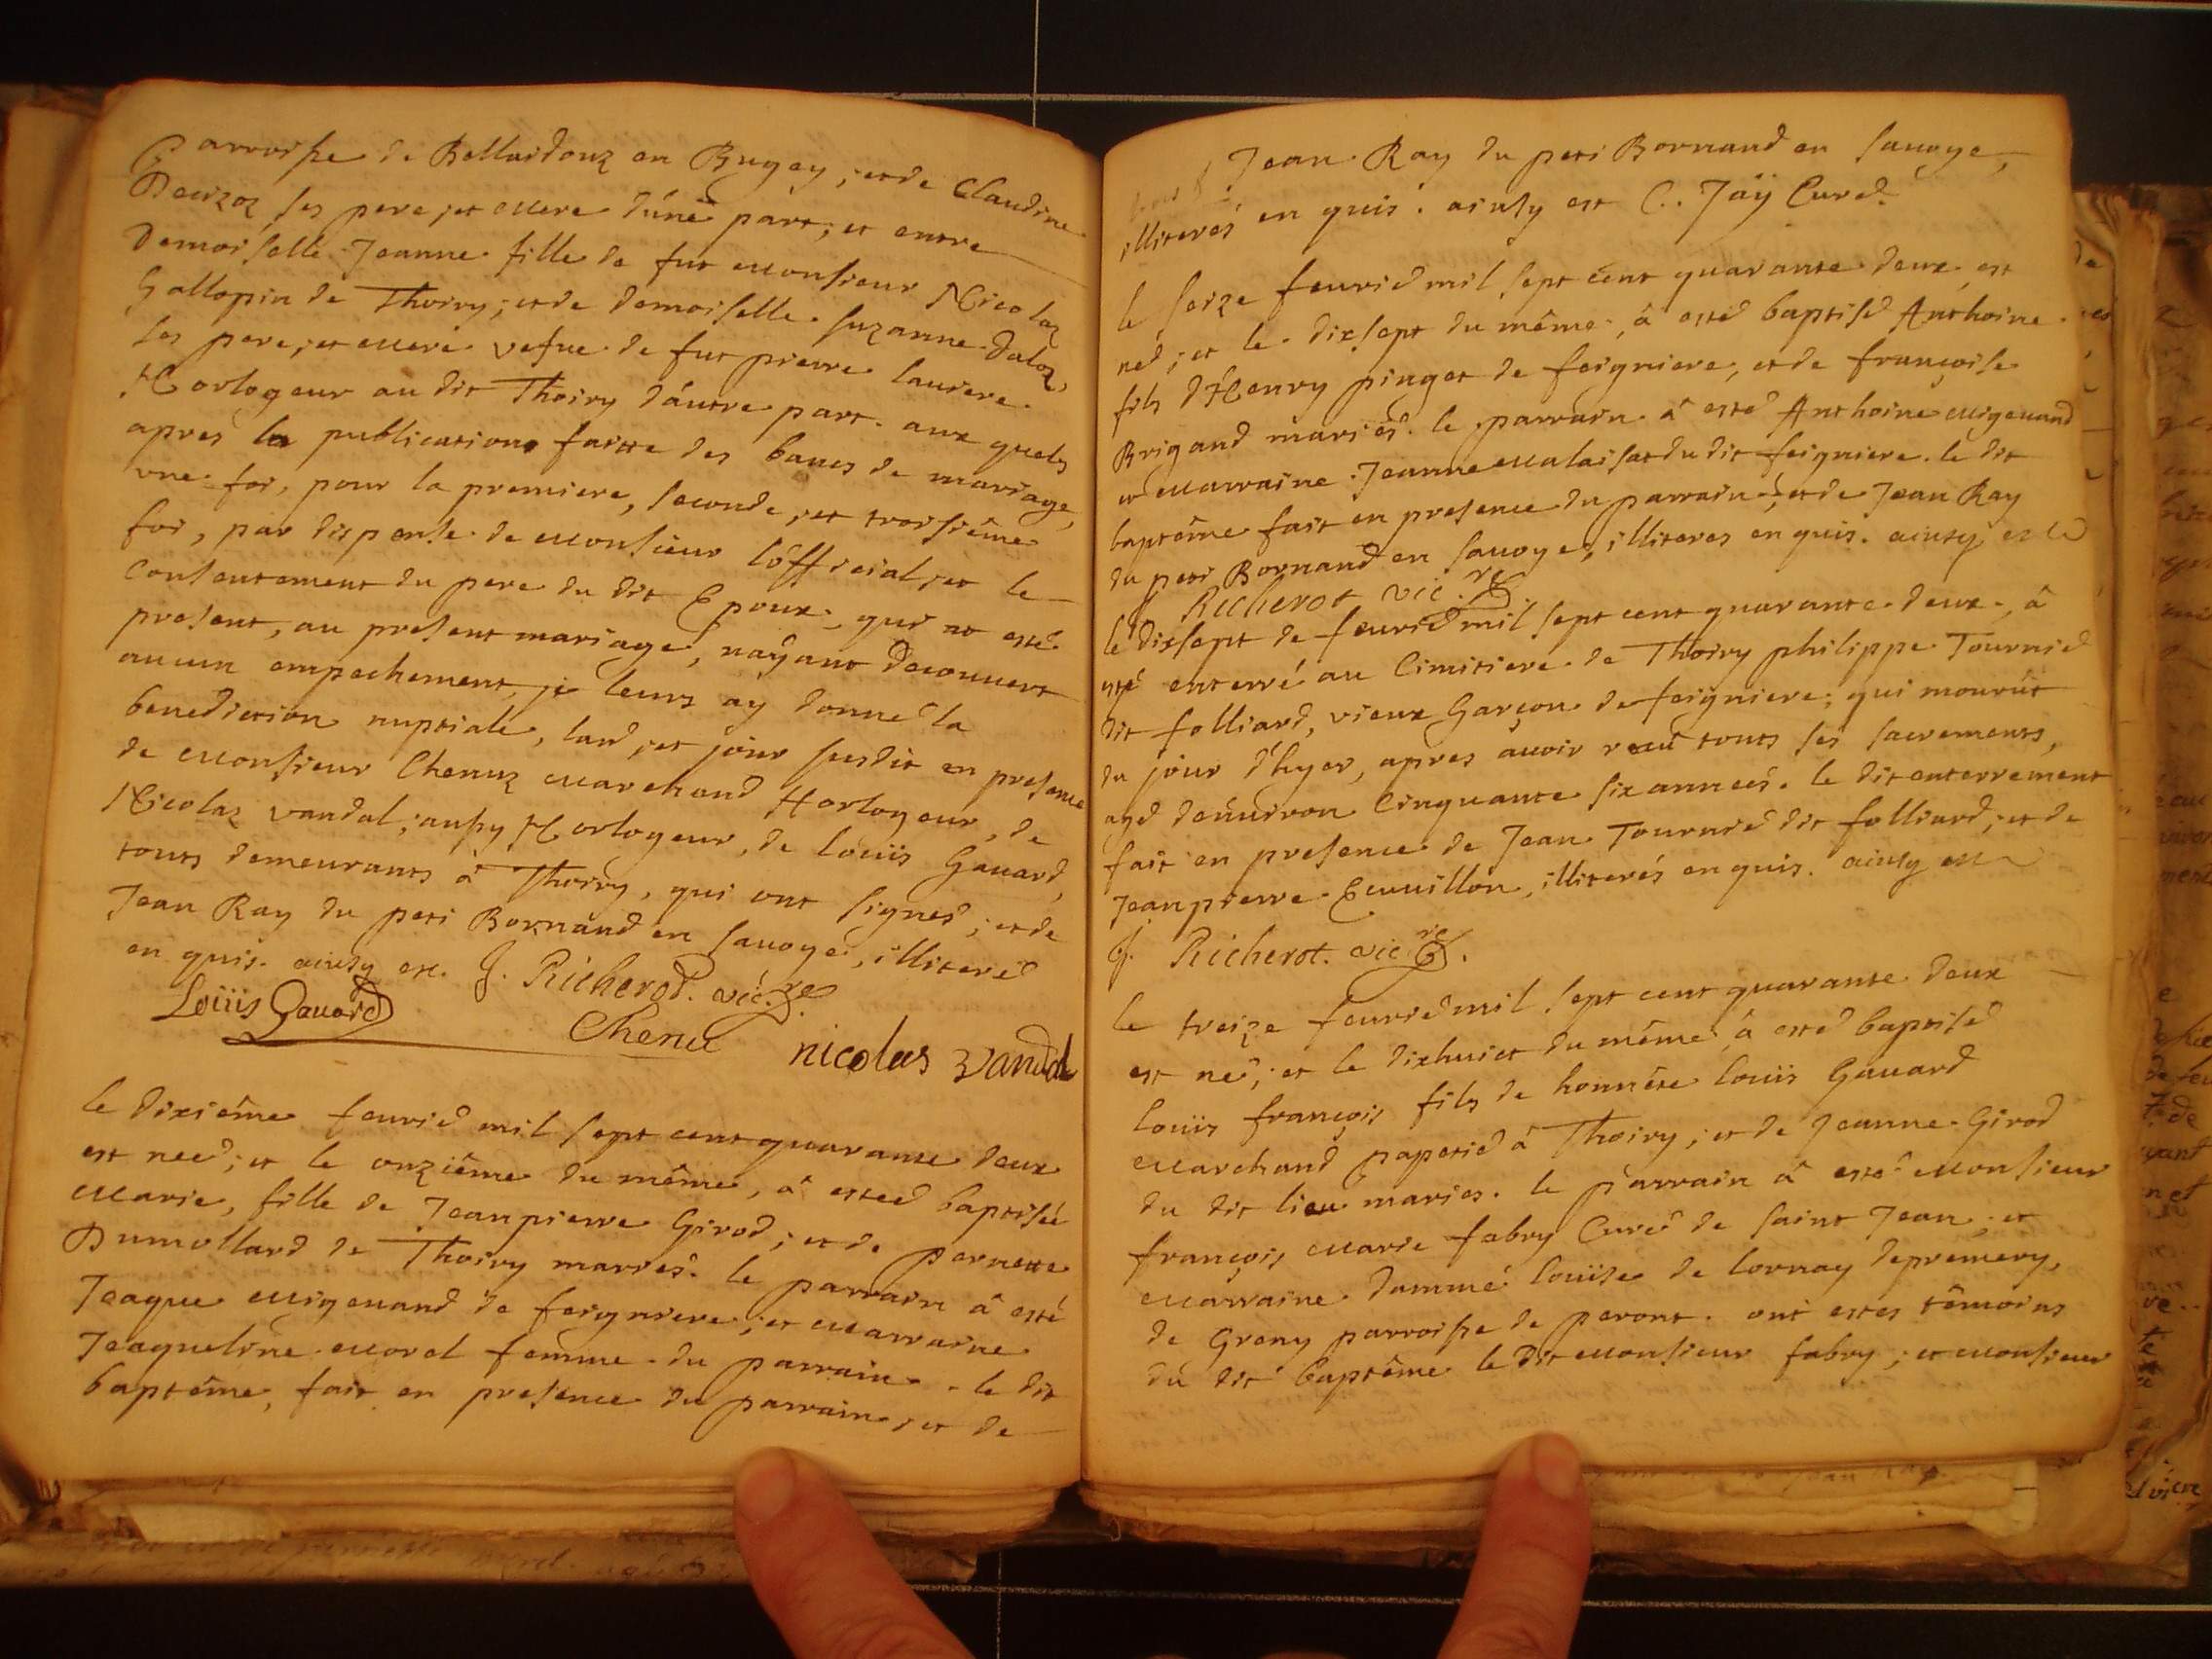 Parroisse de Bellaidouz en Bugey; et de Claudine
Deurzoz ses pere, et mere d'úne part; et entre
Demoiselle Jeanne fille de fut monsieur Nicolaz
Gallopin de Thoiry; et de demoiselle suzanne Daloz,
ses pere, et mere vefue de fut pierre lausere
Horlogeur au dit Thoiry d'áutre part. aux quels
apres la publication faitte des bancs de mariage,
vne foi, pour la premiere, seconde, et troisiême
foi, par dispense de monsieur lófficial, et le
Consentement du pere du dit Epoux, qui at esté
present, au present mariage, nayant decouuert
aucun empechement, je leurs ay donné la
benediction nuptiale, land, et jóur susdit en presence
de monsieur Chenuz marchand Horlogeur, de
Nicolaz vandal, aussy Horlogeur, de loüis Gauard,
touts demeurants â Thoiry, qui ont signed; et de
Jean Ray du peti Bornand en sauoye, illiteré
en quis. ainsy est. J. Richerod. vic.re
Loüis Gauard
Chenu
nicolas vandal
le dixiême feurié mil sept cent quarante deux
est née; et le onziême du même, â esteé baptisée
marie, fille de Jeanpierre Girod; et de pernette
Dumollard de Thoiry mariés. le parrain â esté
Jeaque migenand de feigniere; et marraine
Jeaqueline morel femme du parrain. le dit
baptême, fait en presence du parrain, et de
Jean Ray du peti Bornand en sauoye,
illiterés en quis. ainsy est C. Jäÿ Curé.
le seize feurié mil sept cent quarante deux est
né; et le dixsept du même, â esté baptisé Anthoine
fils d'Henry pinget de feigniere, et de françoise
Brigand mariés. le parrain â esté Anthoine migenand
et marraine Jeanne malaisat du dit feigniere. le dit
baptême fait en presence du parrain, et de Jean Ray
du peti Bornand en sauoye, illiteres en quis. ainsy est
J. Richerot vic.re
le dixsept de feurié mil sept cent quarante deux, â
esté enterré au Cimitiere de Thoiry philippe Tournié
dit folliard, vieux Garçon de feigniere; qui mourût
du jóur d'hyer, apres áuoir receû touts ses sacrements,
agé denuiron Cinquante six anneés. le dit enterrement
fait en presence de Jean Tournié dit folliard; et de
Jeanpierre Ecuuillon, illiterés en quis. ainsy est
J. Richerot. vic.re
le treize feurié mil sept cent quarante deux
est né; et le dixhuict du même â esté baptisé
loüis françois fils de honnête loüis Gauard
marchand papetié â Thoiry; et de Jeanne Girod
du dit lieu maries. le parrain â esté monsieur
françois marie fabry Curé de saint Jean; et
marraine damme loüise de lornay depremery,
de Greny parroisse de peront. ont estes têmoins
dú dit baptême le dit monsieur fabry; et monsieur